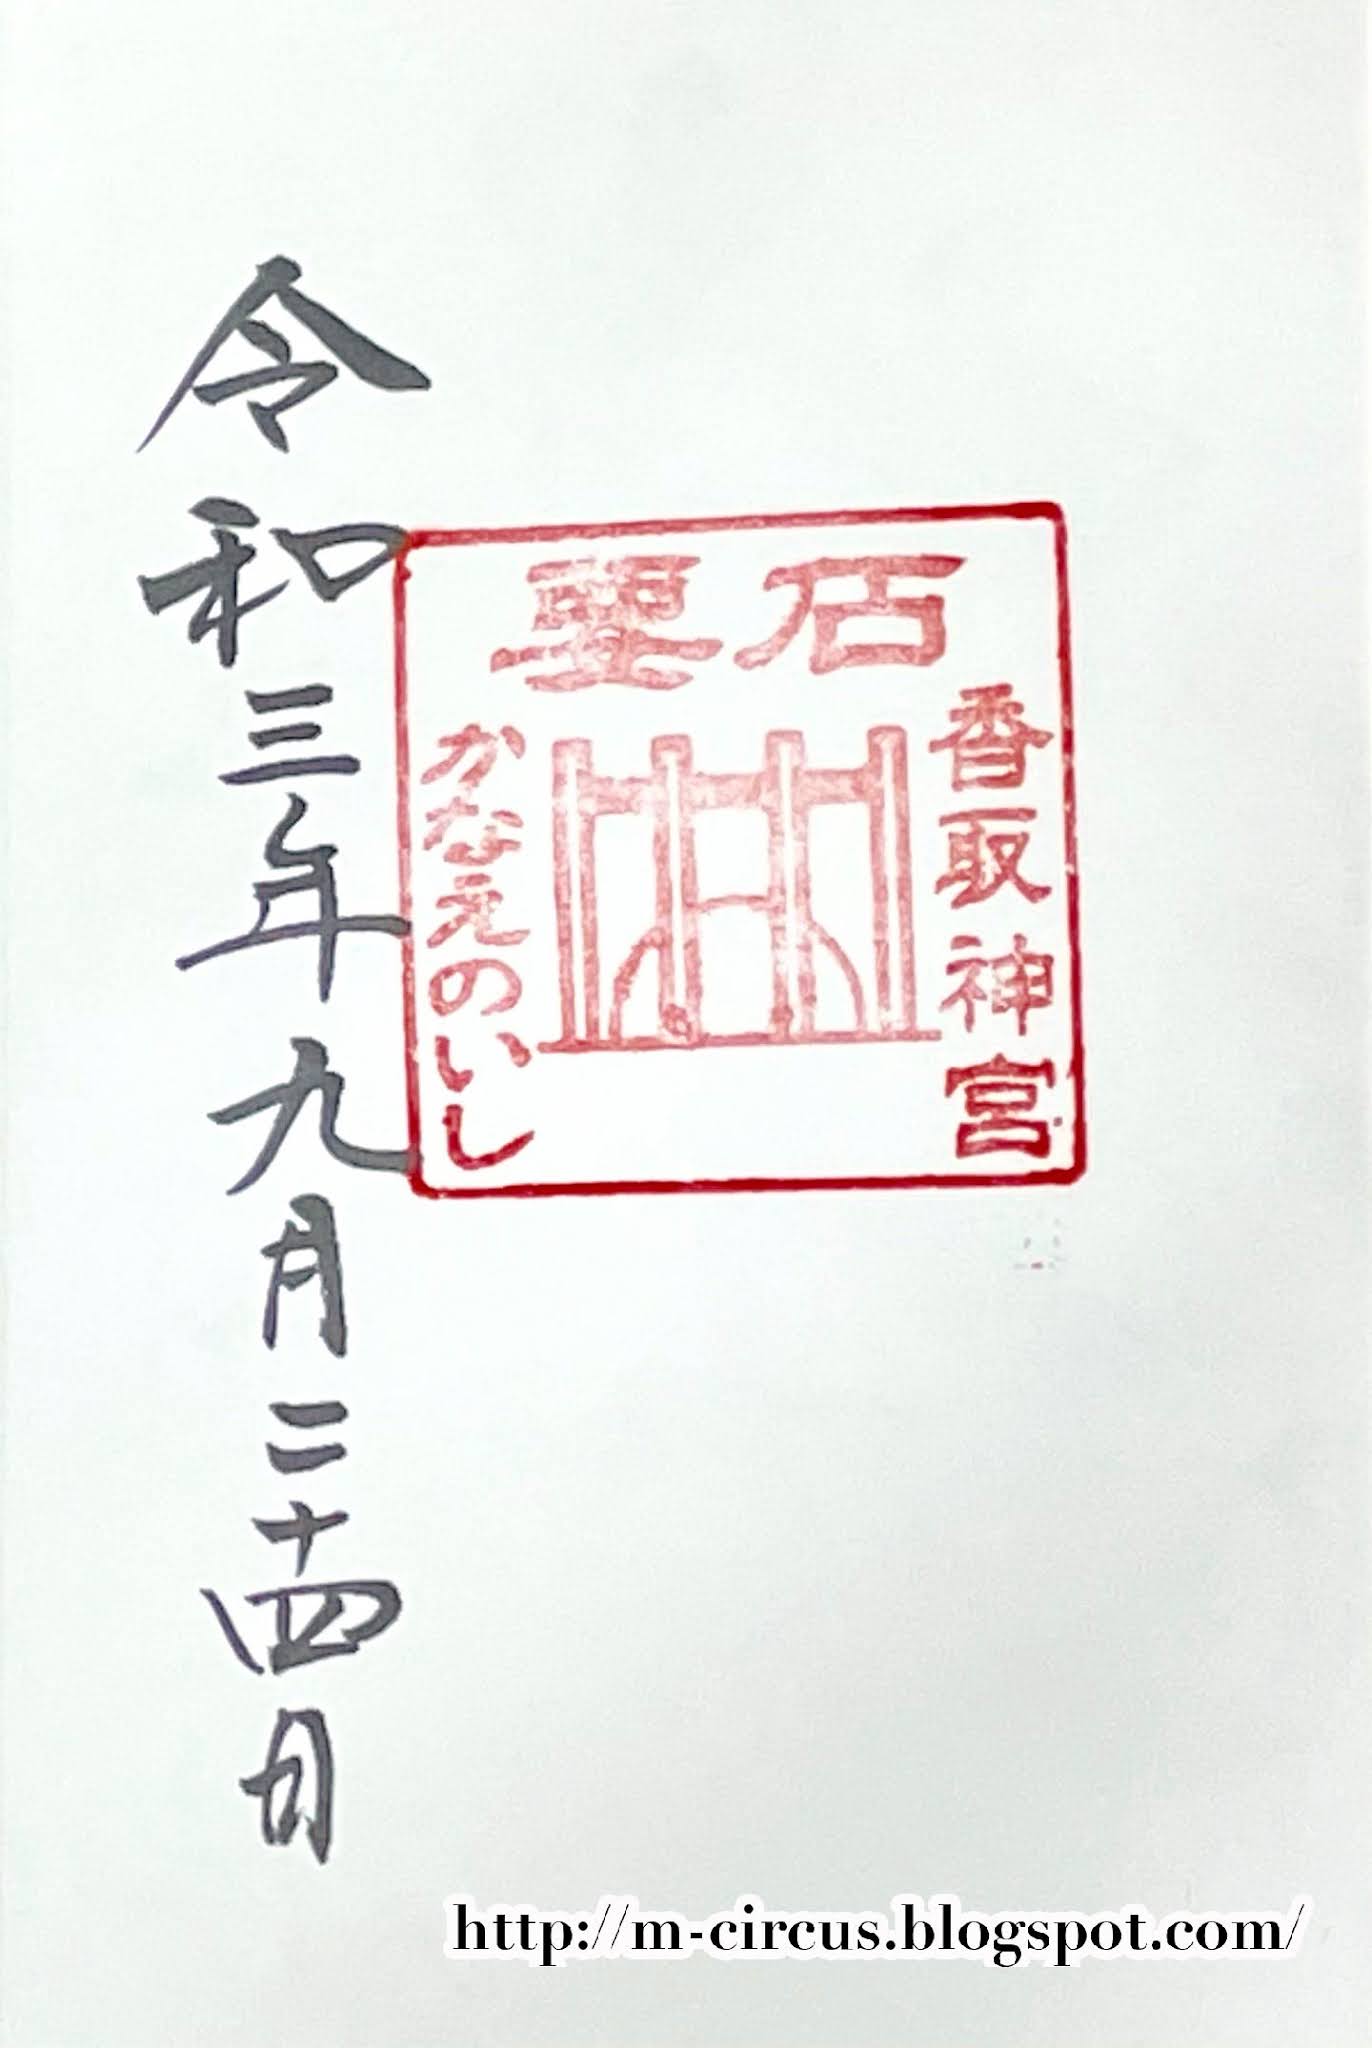 要石
香取神宮
かなえのいし
令和三年九月二十四日
http://m-circus.blogspot.com/